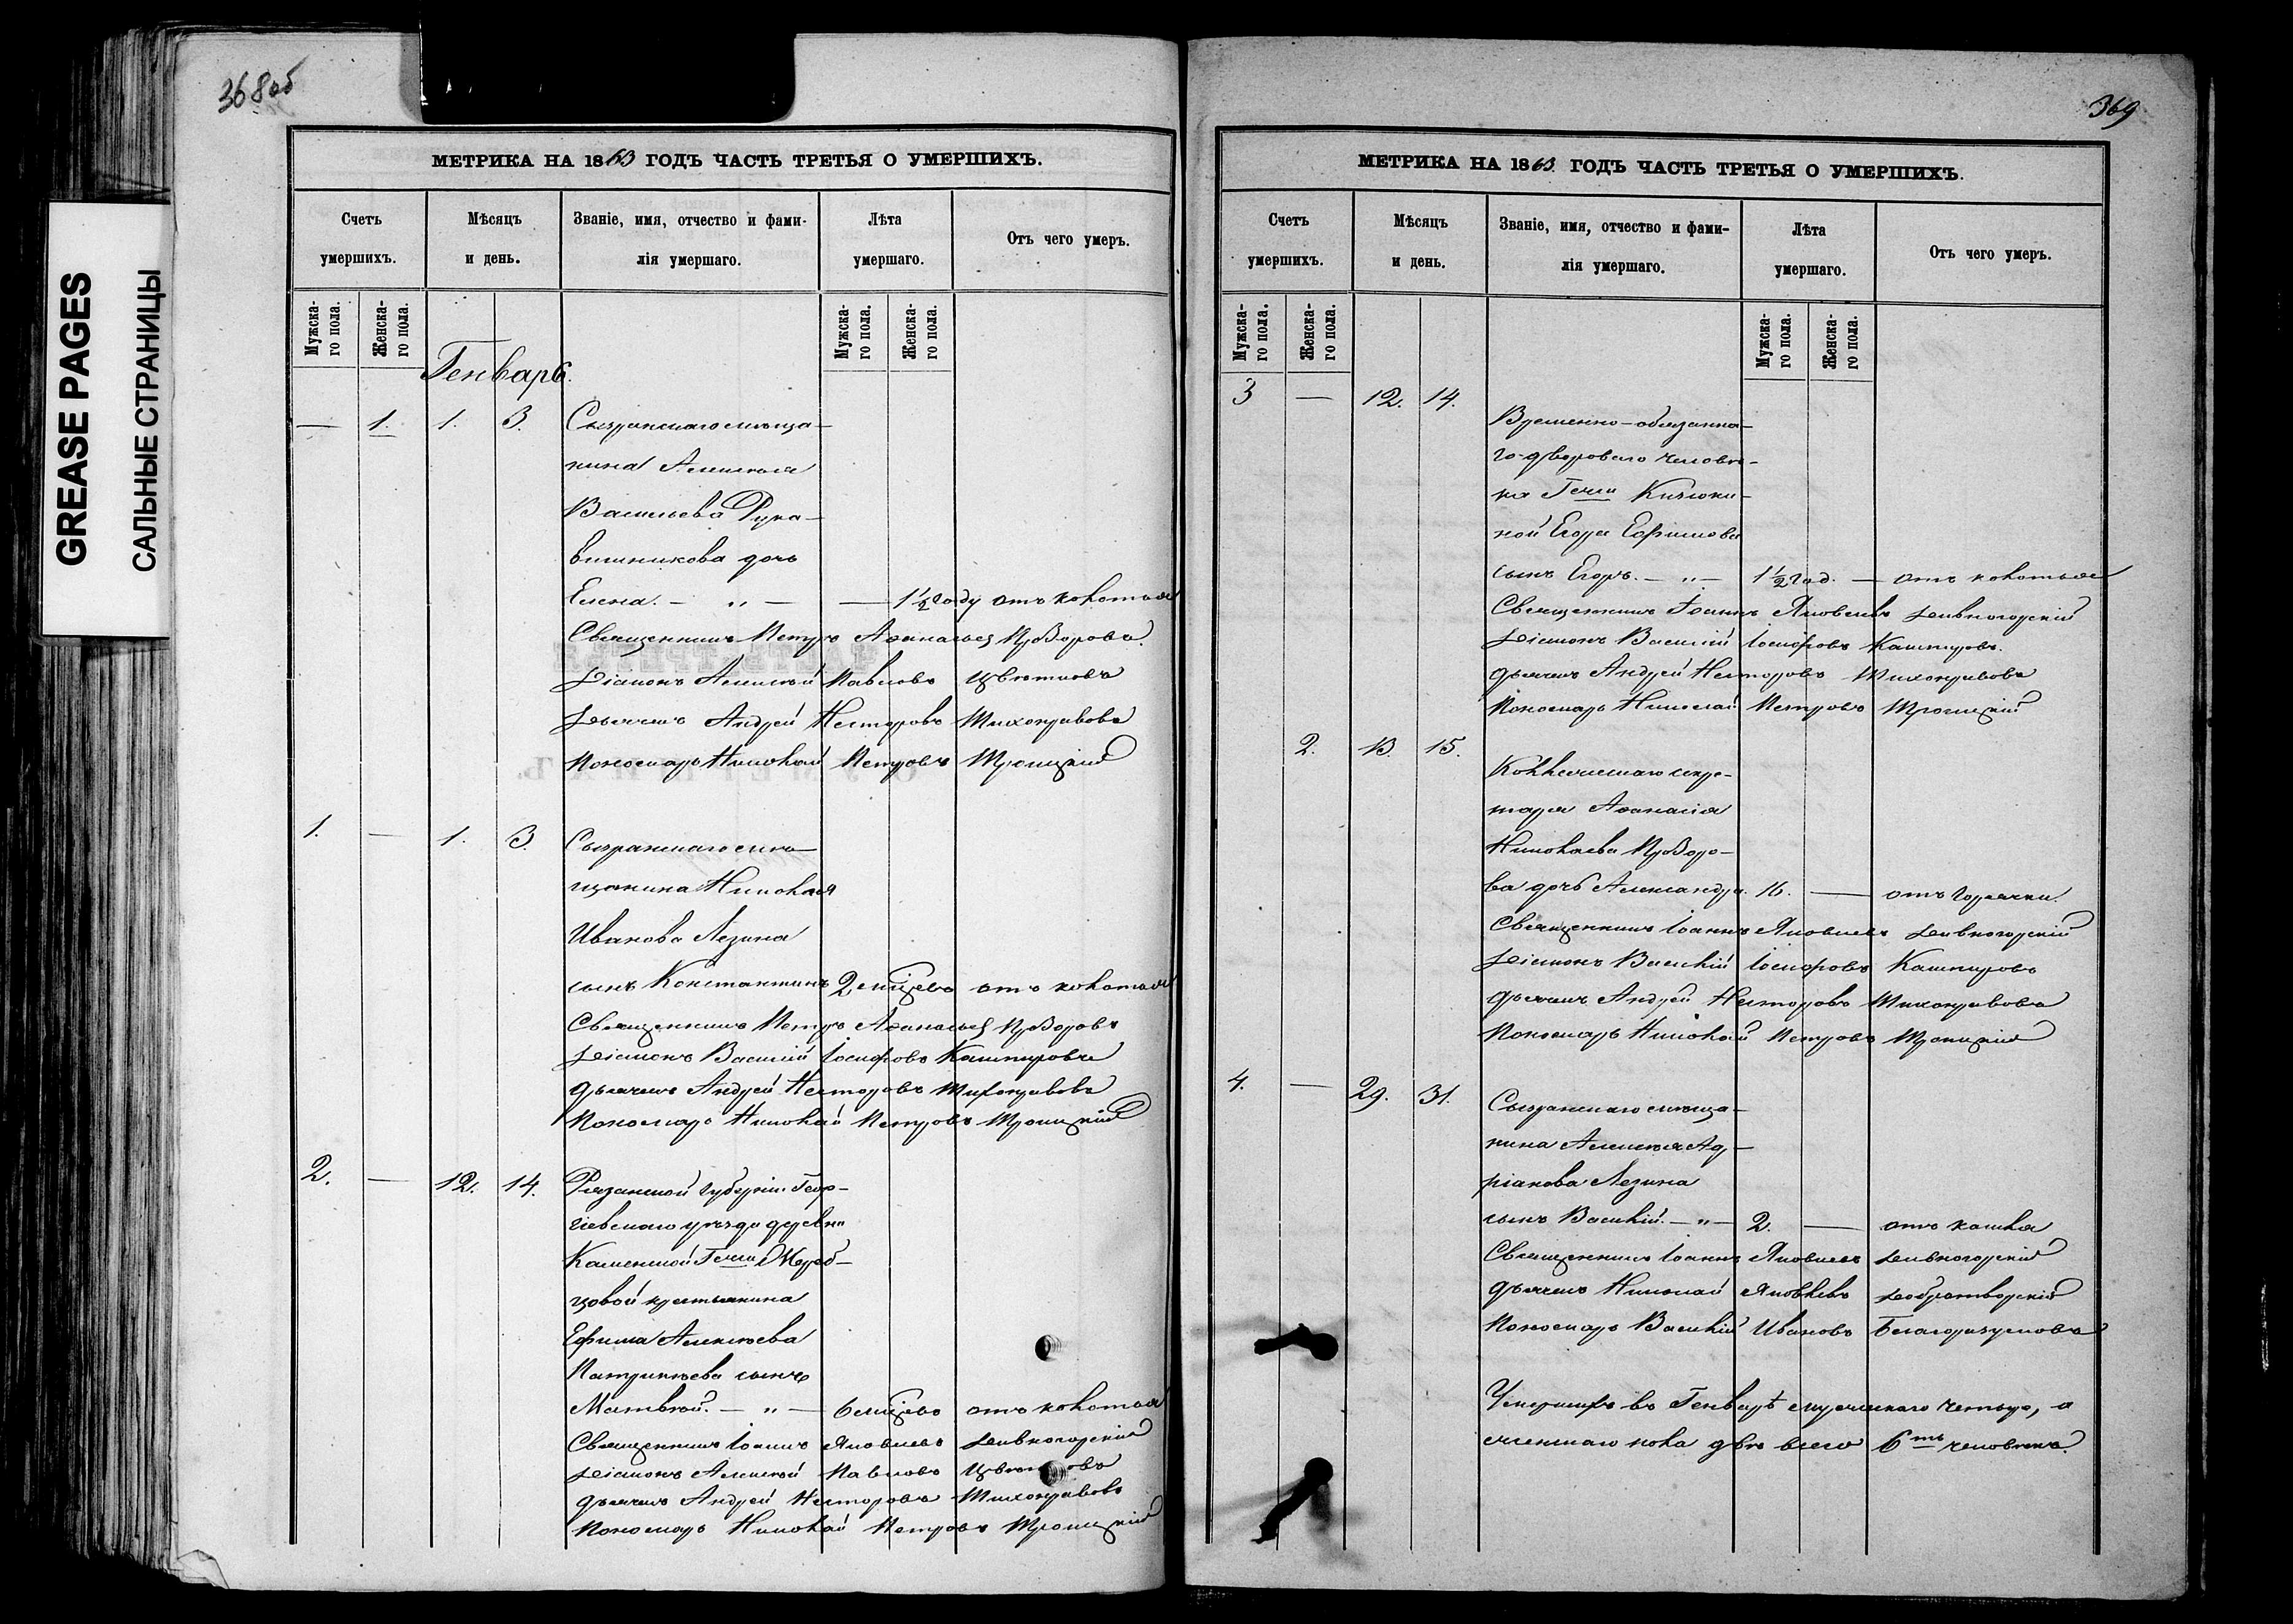 368об
GREASE PAGES
САЛЬНЫЕ СТРАНИЦЫ
МЕТРИКА НА 1863 ГОДЪ ЧАСТЬ ТРЕТЬЯ О УМЕРШИХЪ.
Счетъ умершихъ.
Мѣсяцъ и день.
Званіе, имя, отчество и фами-
лія умершаго.
Лѣта умершаго.
Отъ чего умеръ.
Мужска-
го пола.
Женска-
го пола.
Мужска-
го пола.
Женска-
го пола.
Генварь.
— 1. 1. 3. Сызранскаго мѣща-
нина Алексѣя
Васильева Рука-
вишникова дочь
Елена. — „ — — 1 1/2 году отъ колотья
Священникъ Петръ Аѳанасьев Прозоровъ
Діаконъ Алексѣй Павловъ Цвѣтковъ
Дьячекъ Андрей Несторовъ Тихонравовъ
Пономарь Николай Петровъ Троицкій
1. — 1. 3. Сызранскаго мѣ-
щанина Николая
Иванова Лезина
сынъ Константинъ 2 мѣсяцевъ отъ колотья
Священникъ Петръ Аѳанасьев Прозоровъ
Діаконъ Василій Іосифовъ Кашпировъ
Дьячекъ Андрей Несторовъ Тихонравовъ
Пономарь Николай Петровъ Троицкій
2. — 12. 14. Рязанской губерніи Геор-
гіевскаго уѣзда деревни
Каменкой Гжи Жереб-
цовой крестьянина
Ефима Алексѣева
Патрикѣева сынъ
Матвѣй. — „ — 6 мѣсяцевъ отъ колотья
Священникъ Іоаннъ Яковлевъ Дивногорскій
Діаконъ Алексѣй Павловъ Цвѣтковъ
Дьячекъ Андрей Несторовъ Тихонравовъ
Пономарь Николай Петровъ Троицкій
369
МЕТРИКА НА 1863 ГОДЪ ЧАСТЬ ТРЕТЬЯ О УМЕРШИХЪ.
Счетъ умершихъ.
Мѣсяцъ и день.
Званіе, имя, отчество и фами-
лія умершаго.
Лѣта умершаго.
Отъ чего умеръ.
Мужска-
го пола.
Женска-
го пола.
Мужска-
го пола.
Женска-
го пола.
3 — 12. 14.
Временно-обязанна-
го дворового человѣ-
ка Гжи
ной Егора Ефимова
сынъ Егоръ. — „ — 1 1/2 год. — отъ колотья
Священникъ Іоаннъ Яковлевъ Дивногорскій
Діаконъ Василій Іосифовъ Кашпировъ.
Дьячекъ Андрей Несторовъ Тихонравовъ
Пономарь Николай Петровъ Троицкій
2. 13. 15.
Коллежскаго секре-
таря Аѳанасія
Николаева Прозоро-
ва дочь Александра. 16. — отъ горячки.
Священникъ Іоаннъ Яковлевъ Дивногорскій
Діаконъ Василій Іосифовъ Кашпировъ
Дьячекъ Андрей Несторовъ Тихонравовъ
Пономарь Николай Петровъ Троицкій
4. — 29. 31.
Сызранскаго мѣща-
нина Алексѣя Ад-
ріанова Лезина
сынъ Василій. — „ — 2. — отъ кашля
Священникъ Іоаннъ Яковлевъ Дивногорскій
Дьячекъ Николай Яковлевъ Добротворскій
Пономарь Василій Ивановъ Благоразумовъ
Умершихъ въ Генварѣ мужескаго четыре, а
женскаго пола двѣ всего 6ть человѣкъ.